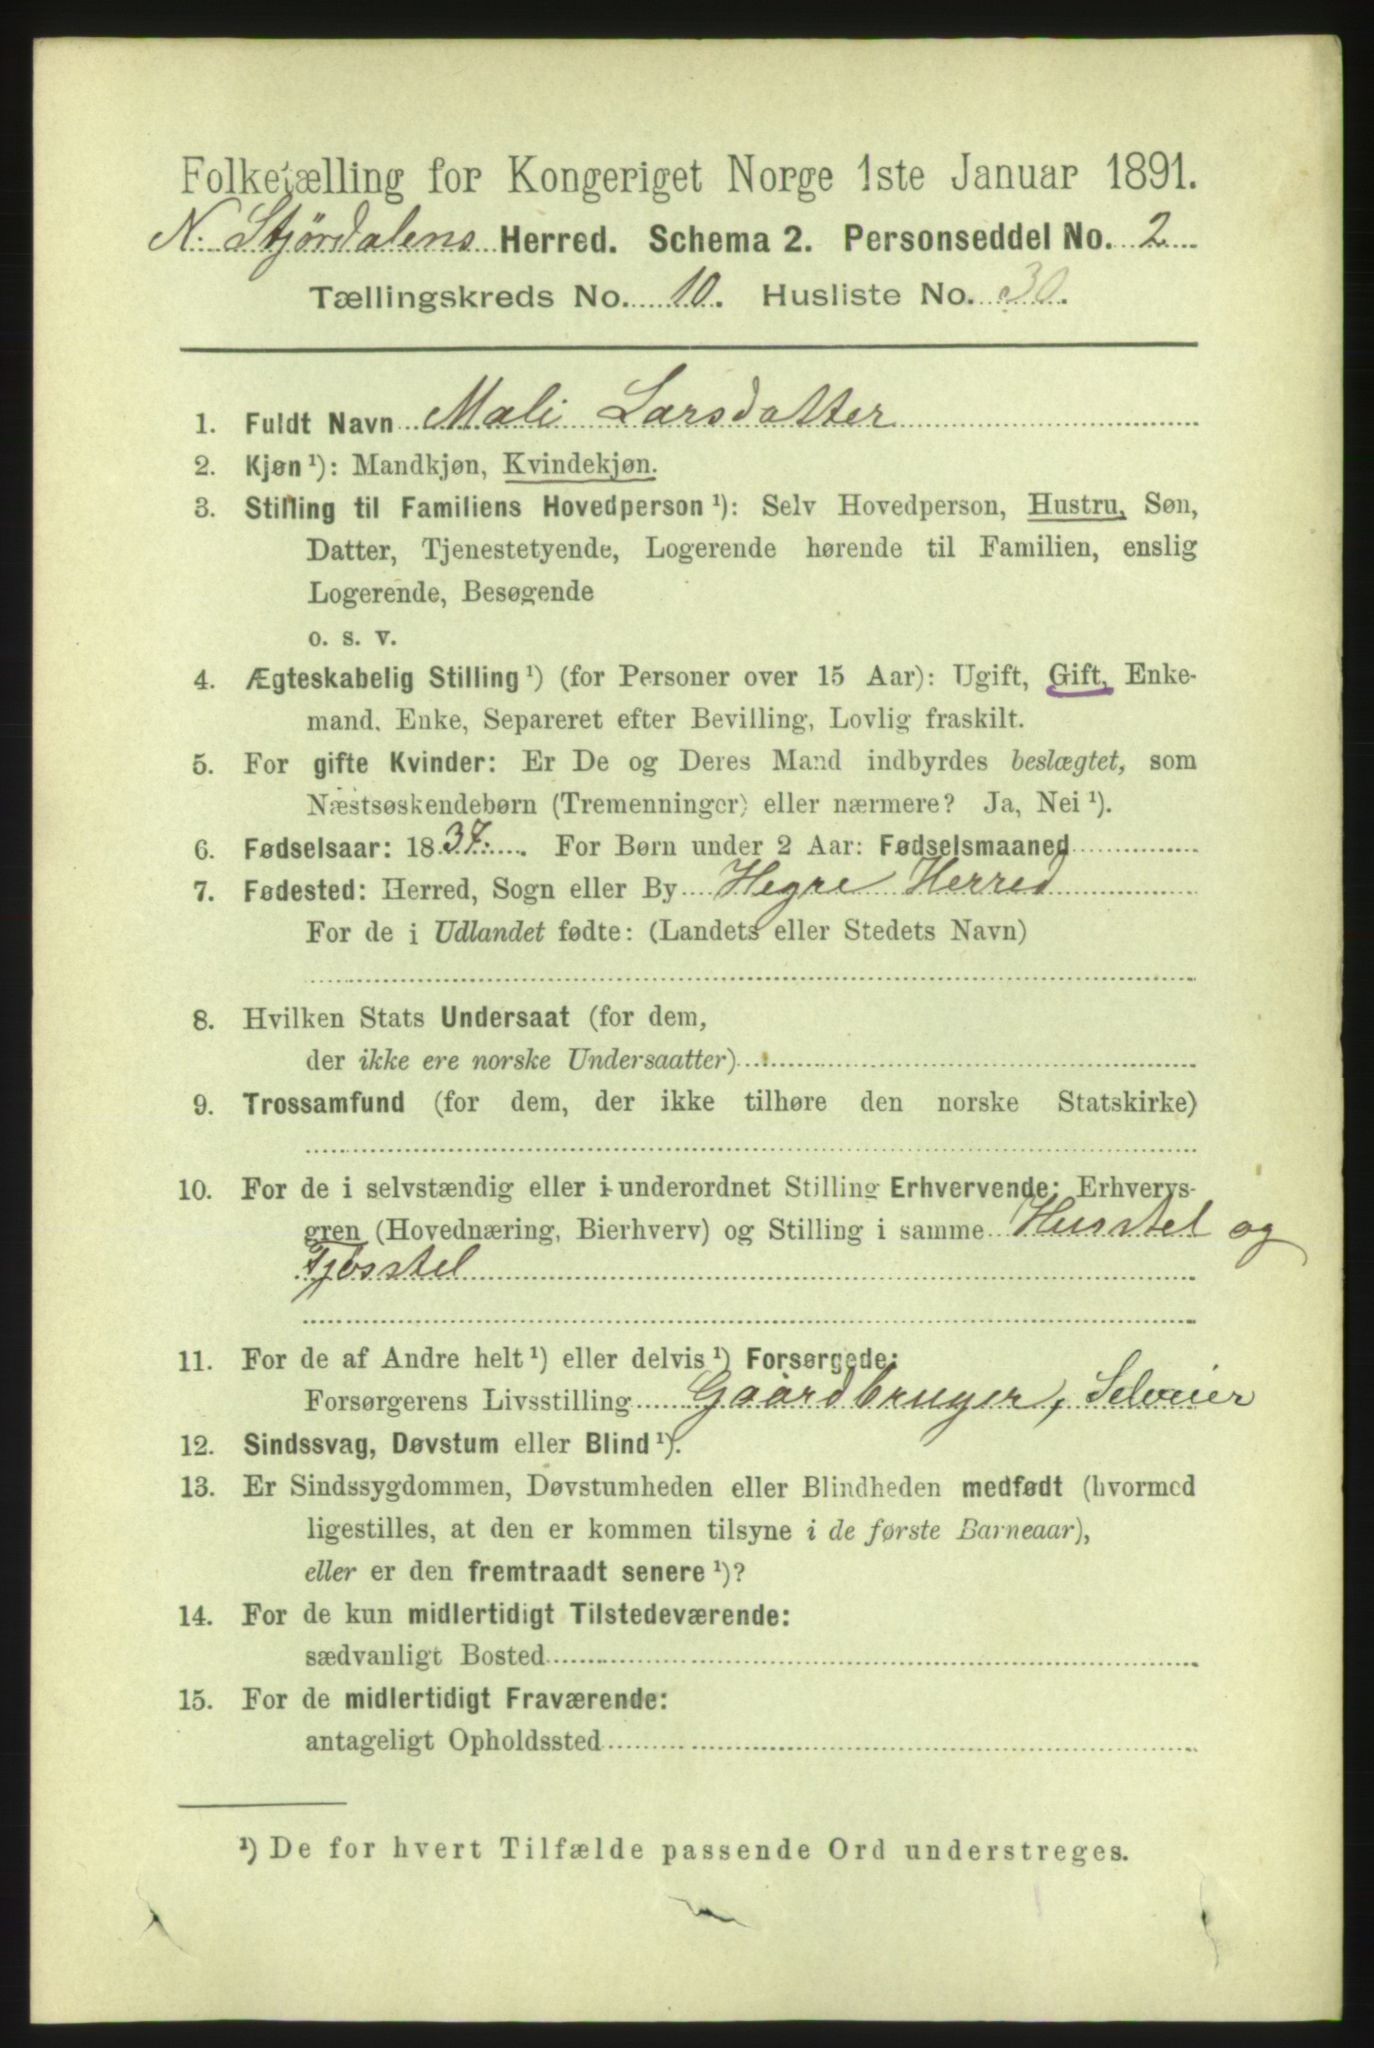 Folketælling for Kongeriget Norge 1ste Januar 1891.
N. Stjørdalens Herred. Schema 2. Personseddel No. 2
Tællingskreds No. 10. Husliste No. 30.
1. Fuldt Navn Mali Larsdatter
2. Kjøn ¹): Mandkjøn, Kvindekjøn.
3. Stilling til Familiens Hovedperson ¹): Selv Hovedperson, Hustru, Søn,
Datter, Tjenestetyende, Logerende hørende til Familien, enslig
Logerende, Besøgende
o. s. v.
4. Ægteskabelig Stilling ¹) (for Personer over 15 Aar): Ugift, Gift, Enke-
mand, Enke, Separeret efter Bevilling, Lovlig fraskilt.
5. For gifte Kvinder: Er De og Deres Mand indbyrdes beslægtet, som
Næstsøskendebørn (Tremenninger) eller nærmere? Ja, Nei ¹).
6. Fødselsaar: 1837. For Børn under 2 Aar: Fødselsmaaned
7. Fødested: Herred, Sogn eller By Hegre Herred
For de i Udlandet fødte: (Landets eller Stedets Navn)
8. Hvilken Stats Undersaat (for dem,
der ikke ere norske Undersaatter)
9. Trossamfund (for dem, der ikke tilhøre den norske Statskirke)
10. For de i selvstændig eller i underordnet Stilling Erhvervende: Erhvervs-
gren (Hovednæring, Bierhverv) og Stilling i samme Husstel og
Fjøsstel
11. For de af Andre helt ¹) eller delvis ¹) Forsørgede:
Forsørgerens Livsstilling Gaardbruger, Selveier
12. Sindssvag, Døvstum eller Blind ¹).
13. Er Sindssygdommen, Døvstumheden eller Blindheden medfødt (hvormed
ligestilles, at den er kommen tilsyne i de første Barneaar),
eller er den fremtraadt senere ¹)?
14. For de kun midlertidigt Tilstedeværende:
sædvanligt Bosted
15. For de midlertidigt Fraværende:
antageligt Opholdssted
¹) De for hvert Tilfælde passende Ord understreges.